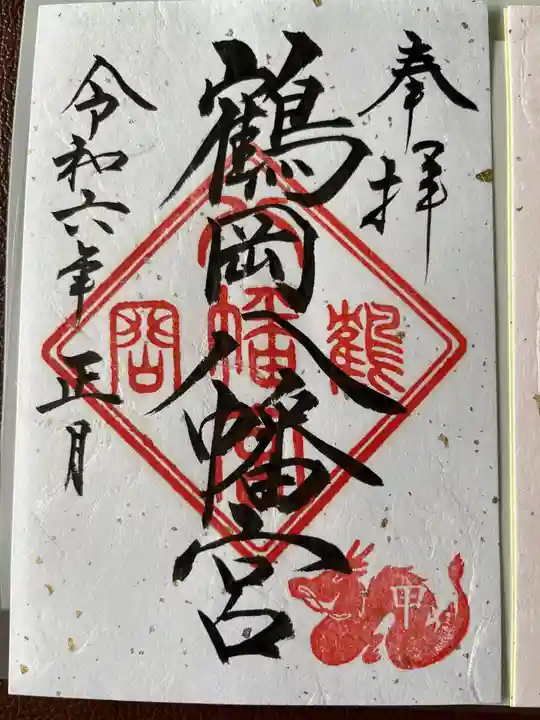 奉拝
鶴岡八幡宮
令和六年正月
鶴
八幡宮
岡
甲